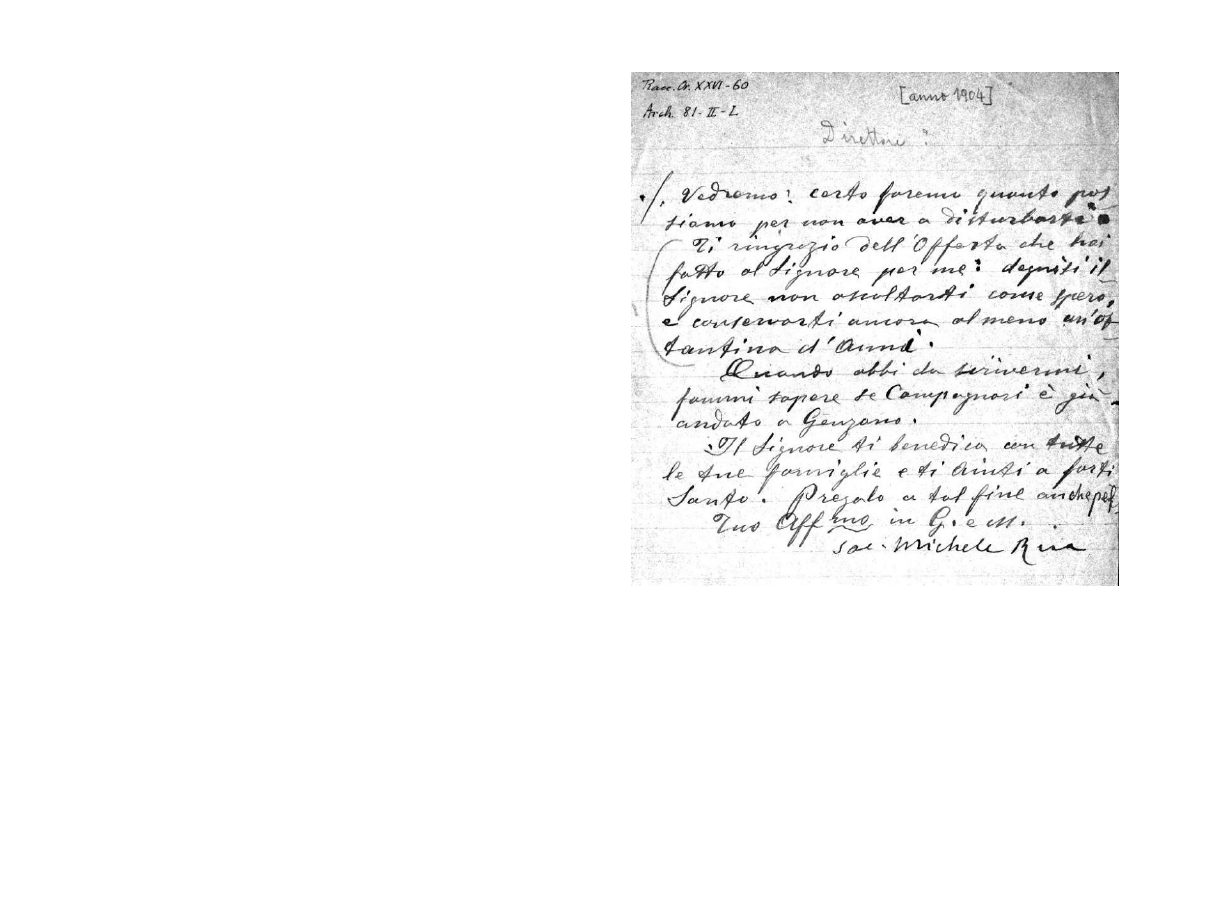 Racc. Or. XXVI-60
[anno 1904]
Arch. 81-II-2
Direttore?
./. Vedremo: certo faremo quanto pos
siamo per non aver a disturbarti.
Ti ringrazio dell'Offerta che hai
fatto al Signore per me: degnisi il
Signore non ascoltarti come spero,
e conservarti ancora almeno un'ot
tantina d'Anni.
Quando abbi da scrivermi,
fammi sapere se Campagnari è già
andato a Genzano.
Il Signore ti benedica con tutte
le tue famiglie e ti Aiuti a farti
Santo. Pregalo a tal fine anche pel
Tuo Affmo in G. e M.
Sac. Michele Rua